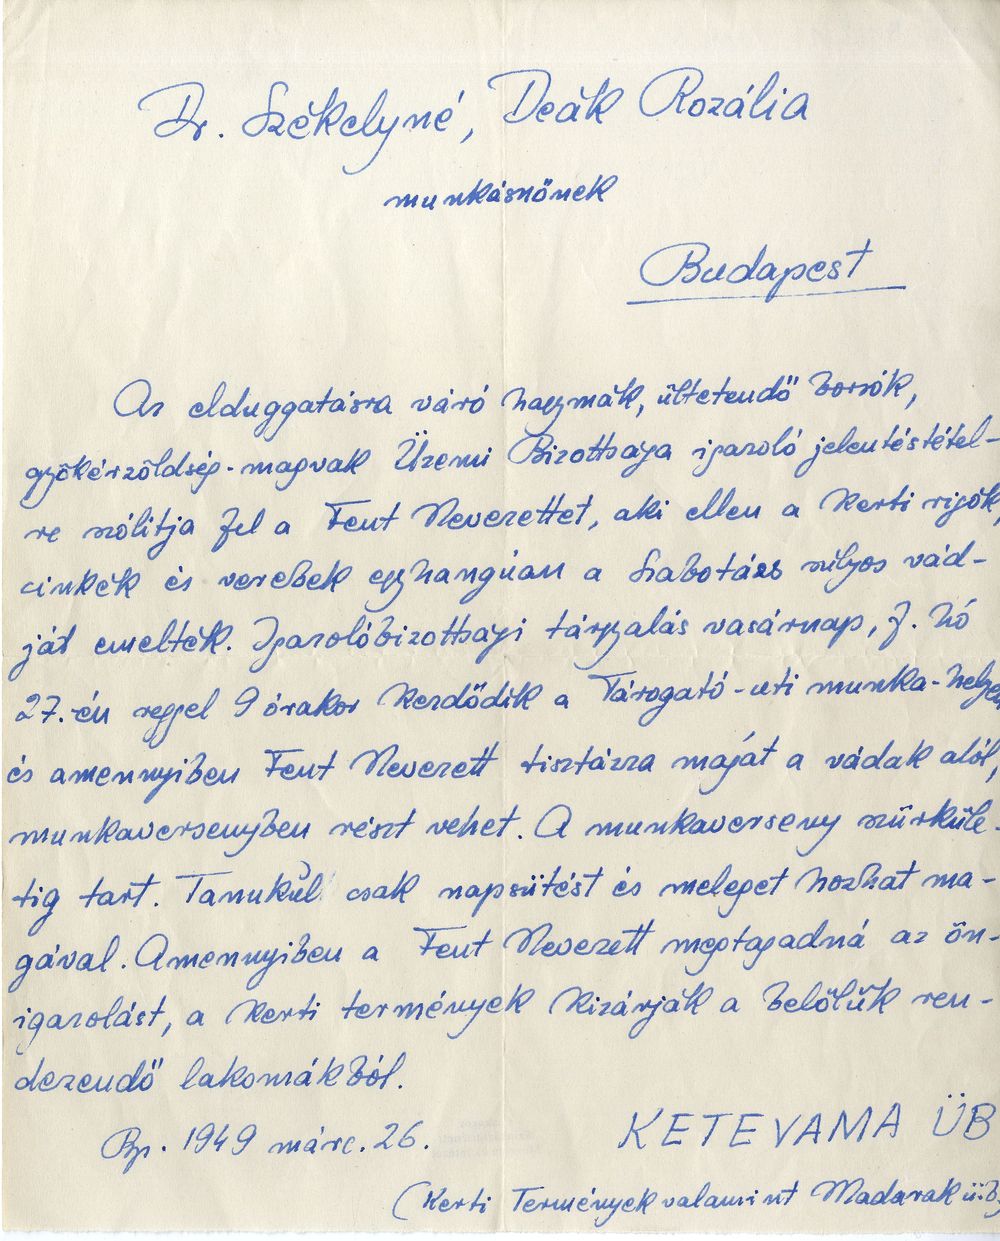 Dr. Székelyné, Deák Rozália
munkásnőnek
Budapest
Az elduggatásra váró hagymák, ültetendő borsók,
gyökérzöldség-magvak Üzemi Bizottsága igazoló jelentéstétel-
re szólitja fel a Fent Nevezettet, aki ellen a kerti rigók,
cinkék és verebek egyhangúan a Szabotázs súlyos vád-
ját emelték. Igazolóbizottsági tárgyalás vasárnap, f. hó
27.-én reggel 9 órakor kezdődik a Tárogató-uti munka-helyen
és amennyiben Fent Nevezett tisztázza magát a vádak alól,
munkaversenyben részt vehet. A munkaverseny szürküle-
tig tart. Tanukúl csak napsütést és meleget hozhat ma-
gával. Amennyiben a Fent Nevezett megtagadná az ön-
igazolást, a kerti termények kizárják a belőlük ren-
dezendő lakomákból.
Bp. 1949 márc. 26.
KETEVAMA ÜB
(Kerti Termények valamint Madarak ü.b.)